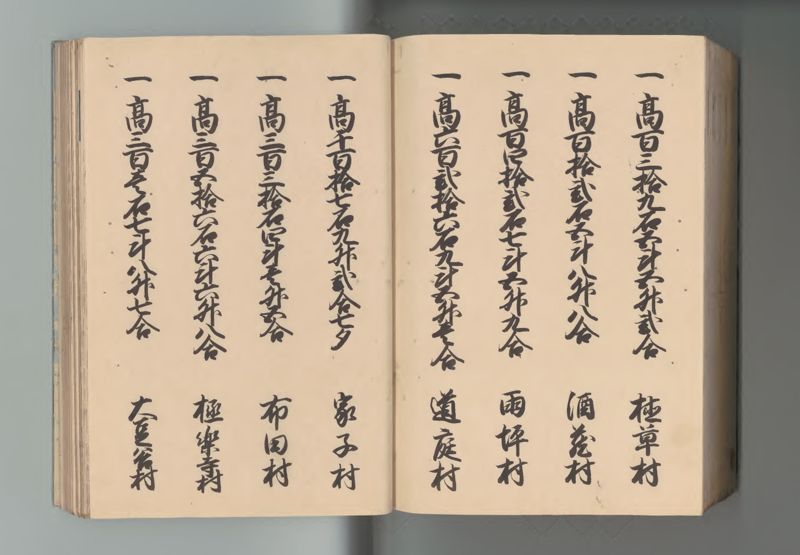 一 高百三拾九石五斗五升弐合 植草村
一 高百拾弐石五斗八升八合 酒蔵村
一 高百四拾弐石七斗五升九合 雨坪村
一 高六百弐拾六石九斗五升壱合 道庭村
一 高千百拾七石九升弐合七夕 家子村
一 高三百三拾石四斗壱升五合 布田村
一 高三百五拾六石六斗六升八合 極楽寺村
一 高三百壱石七斗八升七合 大豆谷村